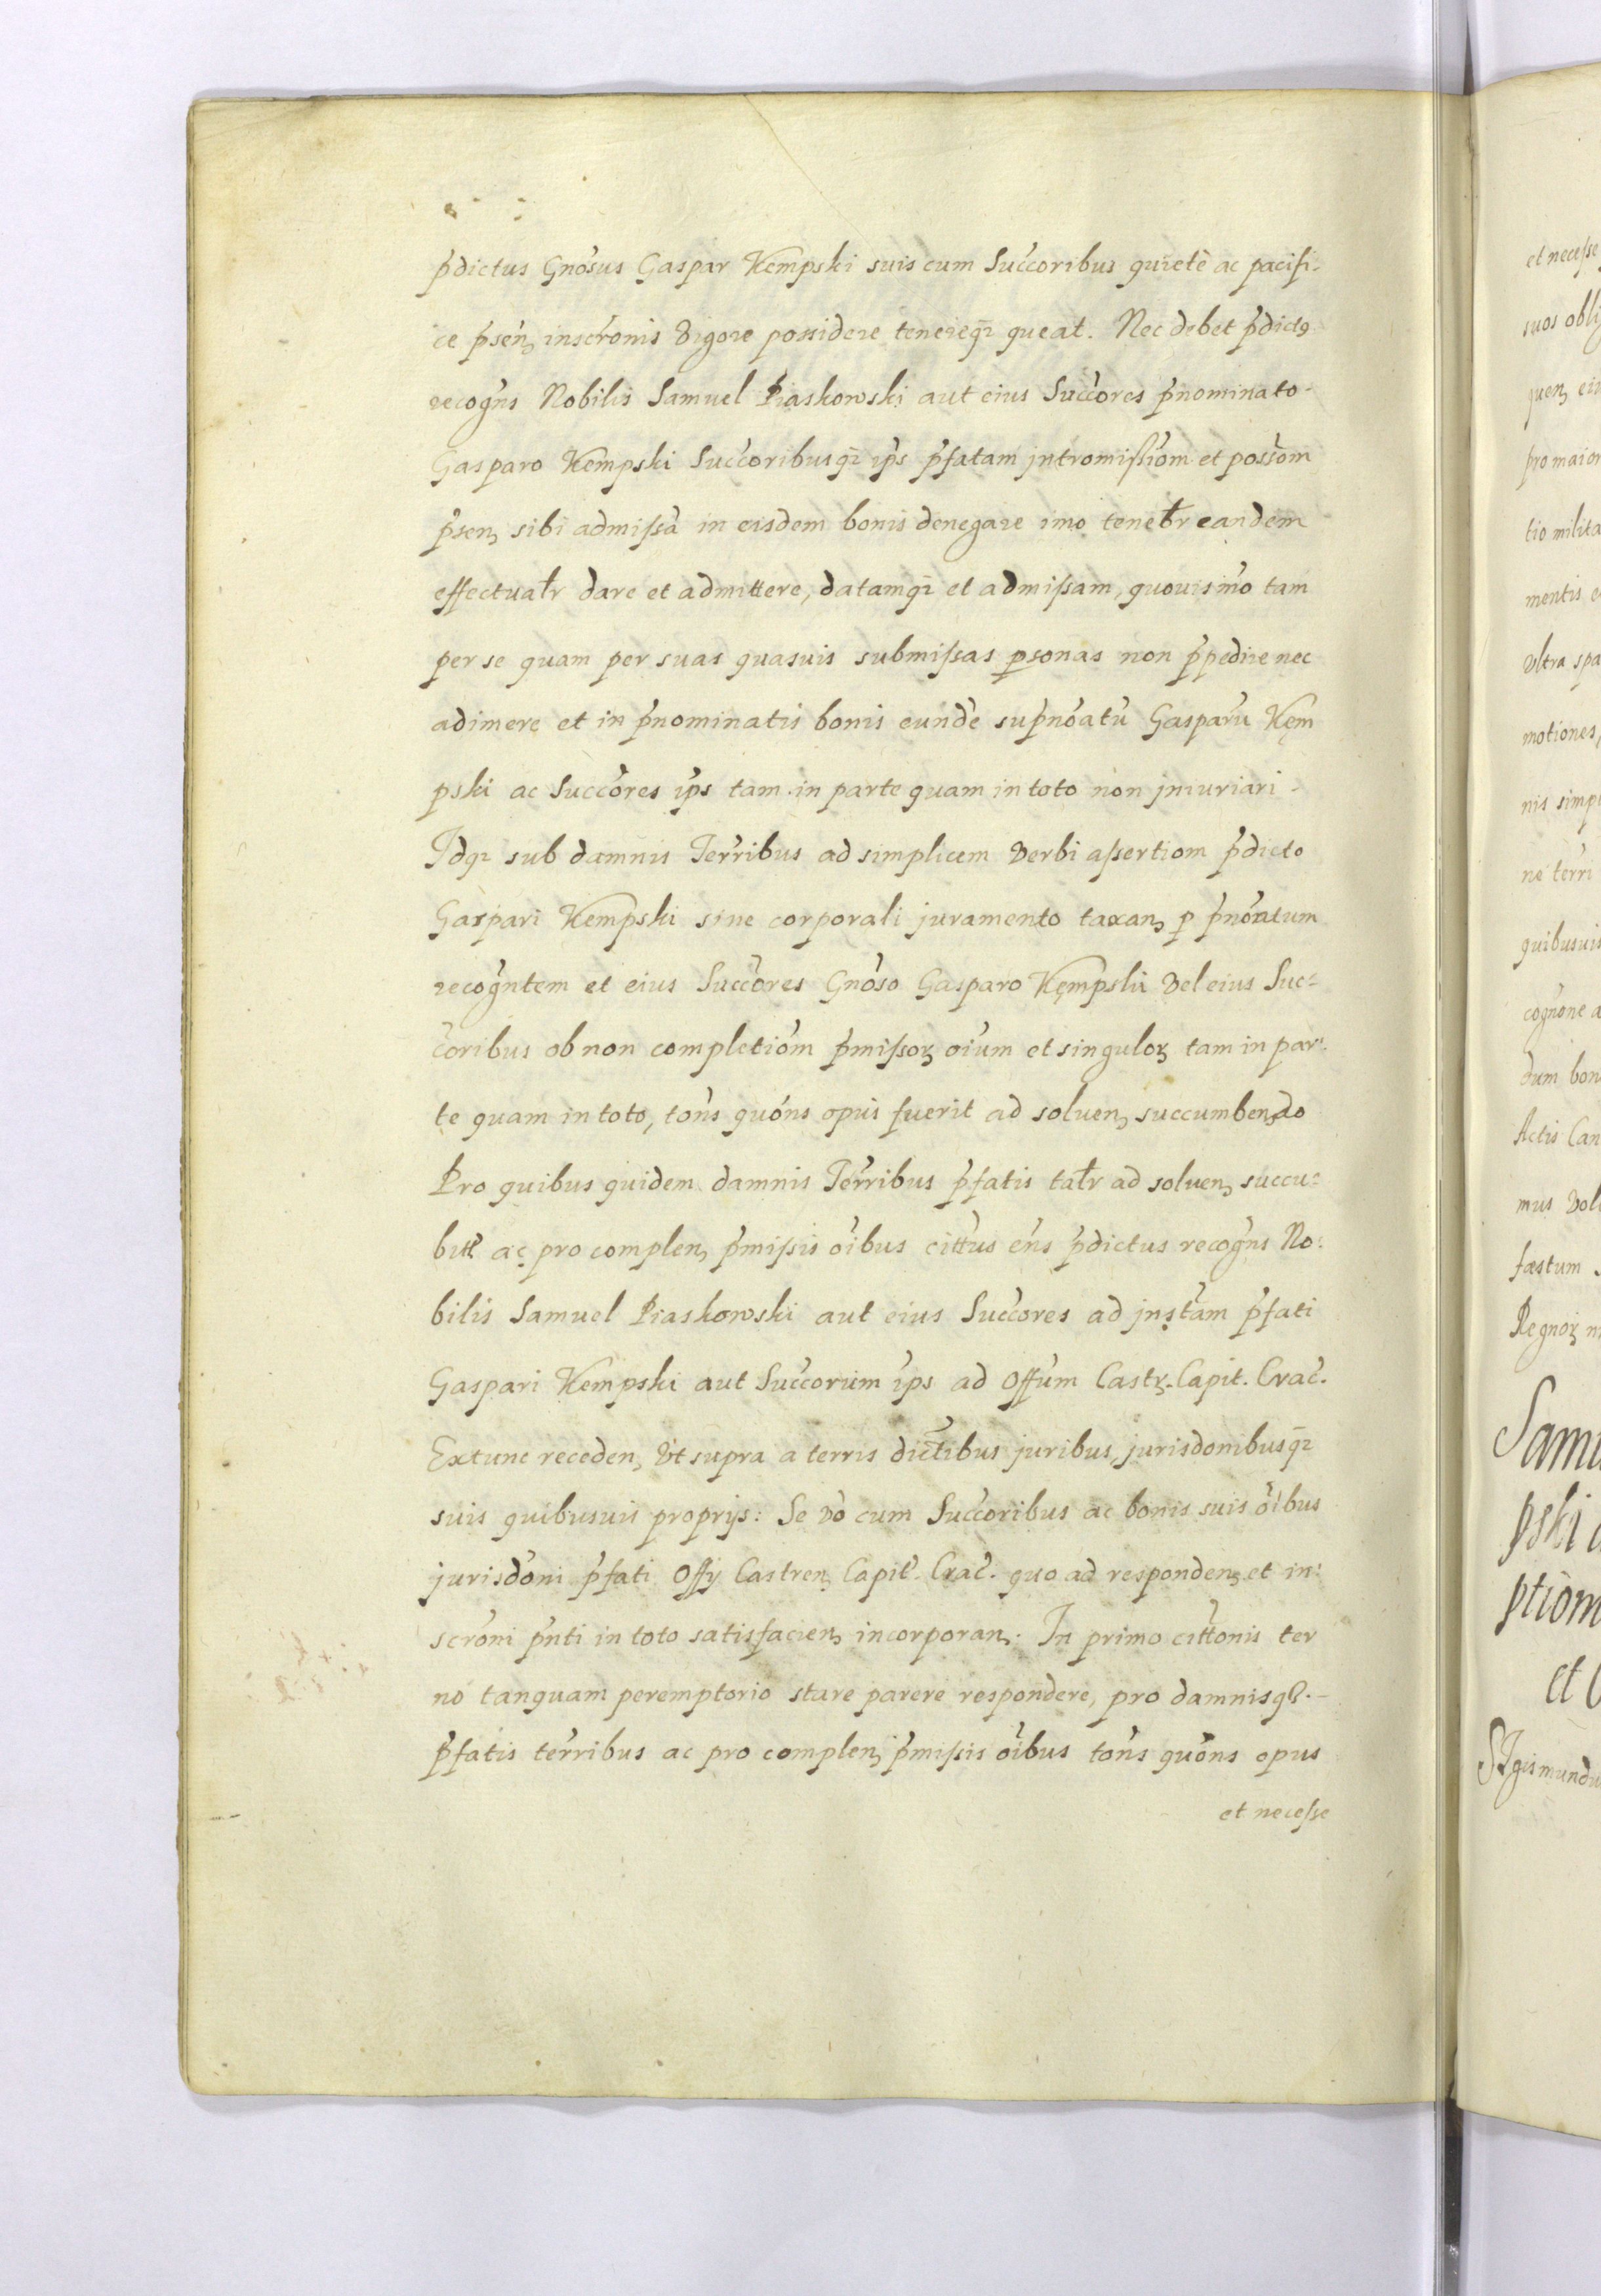 pͬdictus Gnosus Gaspar Kempski suis cum Succoribus quietè ac pacifi-
ce pͬsenꝫ inscronis vigore possidere tenereqꝫ queat. Nec debet pͬdictꝯ
recogns Nobilis Samuel Piaskowski aut eius Succores pͬnominato-
Gasparo Kempski Succoribusqꝫ ips pͬfatam jntromißiom et possom
pͬsenꝫ sibi admißa in eisdem bonis denegare imo tenebr eandem
effectualr dare et admittere, datamqꝫ et admißam, quouismo tam
per se quam per suas quasuis submißas ꝑsonas non pͬpedire nec
adimere et in pͬnominatis bonis eunde supͬnoatu Gasparu Kęm
pski ac Succores ips tam in parte quam in toto non jniuriari.
Jdqꝫ sub damnis Terribus ad simplicem verbi aßertiom pͬdicto
Gaspari Kempski sine corporali juramento taxanꝫ ꝑ pͬnoatum
recogntem et eius Succores Gnoso Gasparo Kęmpski vel eius Suc-
coribus ob non completiom pͬmißoꝝ oium et singuloꝝ tam in par-
te quam in toto, tons quons opus fuerit ad soluenꝫ succumbendo
Pro quibus quidem damnis Terribus pͬfatis talr ad soluenꝫ succu-
butt ac pro complenꝫ pͬmißis oibus cittus ens pͬdictus recogns No-
bilis Samuel Piaskowski aut eius Succores ad jnstam pͬfati
Gaspari Kempski aut Succorum ips ad Offum Castꝝ. Capit. Crac.
Extunc recedenꝫ vt supra a terris dictibus juribus, jurisdonibusqꝫ
suis quibusuis proprijs: Se vo cum Succoribus ac bonis suis oibus
jurisdoni pͬfati Offij Castrenꝫ Capit. Crac. quo ad respondenꝫ et in-
scroni pͬnti in toto satisfacienꝫ incorporanꝫ. In primo cittonis ter
no tanquam peremptorio stare parere respondere, pro damnisqꝫ.-
pͬfatis terribus ac pro complenꝫ pͬmißis oibus tons quons opus
et neceße
et neceße
suos obli
quenꝫ eiu
pro maior
tio milita
mentis e
vltra spa
motiones,
nis simpl
ne terri
quibusuis
cognone a
dum bon
Actis Can
mus vol
fæstum
Regnoꝝ n
Samu
pski a
ptiom
et
SIgismundu